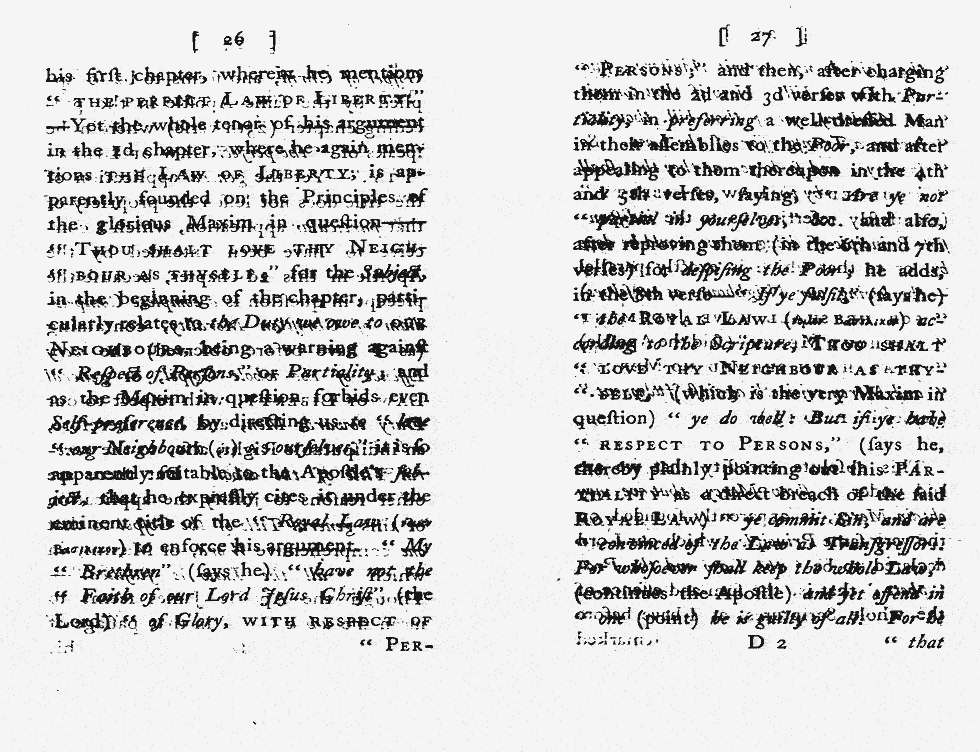 [ 26 ]
his firſt chapter, wherein he mentions
“ THE PERFECT LAW OF LIBERTY.”
—Yet the whole tenor of his argument
in the 2d chapter, where he again men-
tions THE LAW OF LIBERTY, is ap-
parently founded on the Principles of
the glorious Maxim in queſtion—
“ THOU SHALT LOVE THY NEIGH-
“ BOUR AS THYSELF,” for the Subject,
in the beginning of the chapter, parti-
cularly relates to the Duty we owe to our
NEIGHBOURS, being a warning againſt
“ Reſpect of Perſons,” or Partiality; and
as the Maxim in queſtion forbids even
Self-preference, by directing us to “ love
“ our Neighbour as ourſelves,” it is ſo
apparently ſuitable to the Apoſtle's ſub-
ject, that he expreſſly cites it under the
eminent title of the “ Royal Law (νομον
) to enforce his argument. “ My
“ Brethren” (ſays he) “ have not the
“ Faith of our Lord Jeſus Chriſt” (the
Lord) “ of Glory, WITH RESPECT OF
“ PER-
[ 27 ]
“ PERSONS;” and then, after charging
them in the 2d and 3d verſes with Par-
tiality, in preferring a well-dreſſed Man
in their aſſemblies to the Poor, and after
appealing to them thereupon in the 4th
and 5th verſes, ſaying, “ Are ye not
“ partial in yourſelves,” &c. and alſo,
after reproving them (in the 6th and 7th
verſes) for deſpiſing the Poor, he adds,
in the 8th verſe—“ If ye fulfil” (ſays he)
“ the ROYAL LAW ( ) ac-
cording to the Scripture, THOU SHALT
“ LOVE THY NEIGHBOUR AS THY-
“ SELF, (which is the very Maxim in
queſtion) “ ye do well: But if ye have
“ RESPECT TO PERSONS,” (ſays he,
thereby plainly pointing out this PAR-
TIALITY as a direct breach of the ſaid
ROYAL LAW) “ ye commit Sin, and are
“ convinced of the Law as Tranſgreſſors.
For whoſoever ſhall keep the whole Law,”
(continues the Apoſtle) and yet offend in
“ one (point) he is guilty of all. For he
D 2 “ that